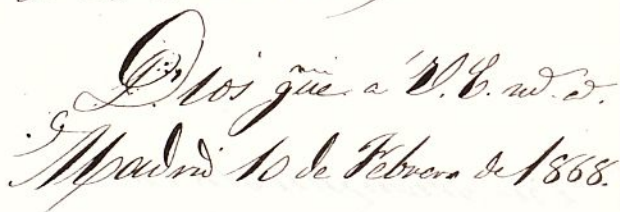 Dios gue. a V. E. m.s a.s
Madrid 10 de Febrero de 1868.